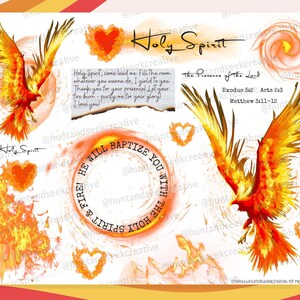 Holy Spirit
Holy Spirit, come lead me. Fill the room
whatever you wanna do, I yield to you.
Thank you for your presence! Let your
fire burn - purify me for your glory!
I love you!
The Presence of the Lord
Exodus 3:2 Acts 2:3
Matthew 3:11-12
Holy Spirit
HE WILL BAPTIZE YOU WITH THE HOLY SPIRIT & FIRE!
@huntandseekcreative